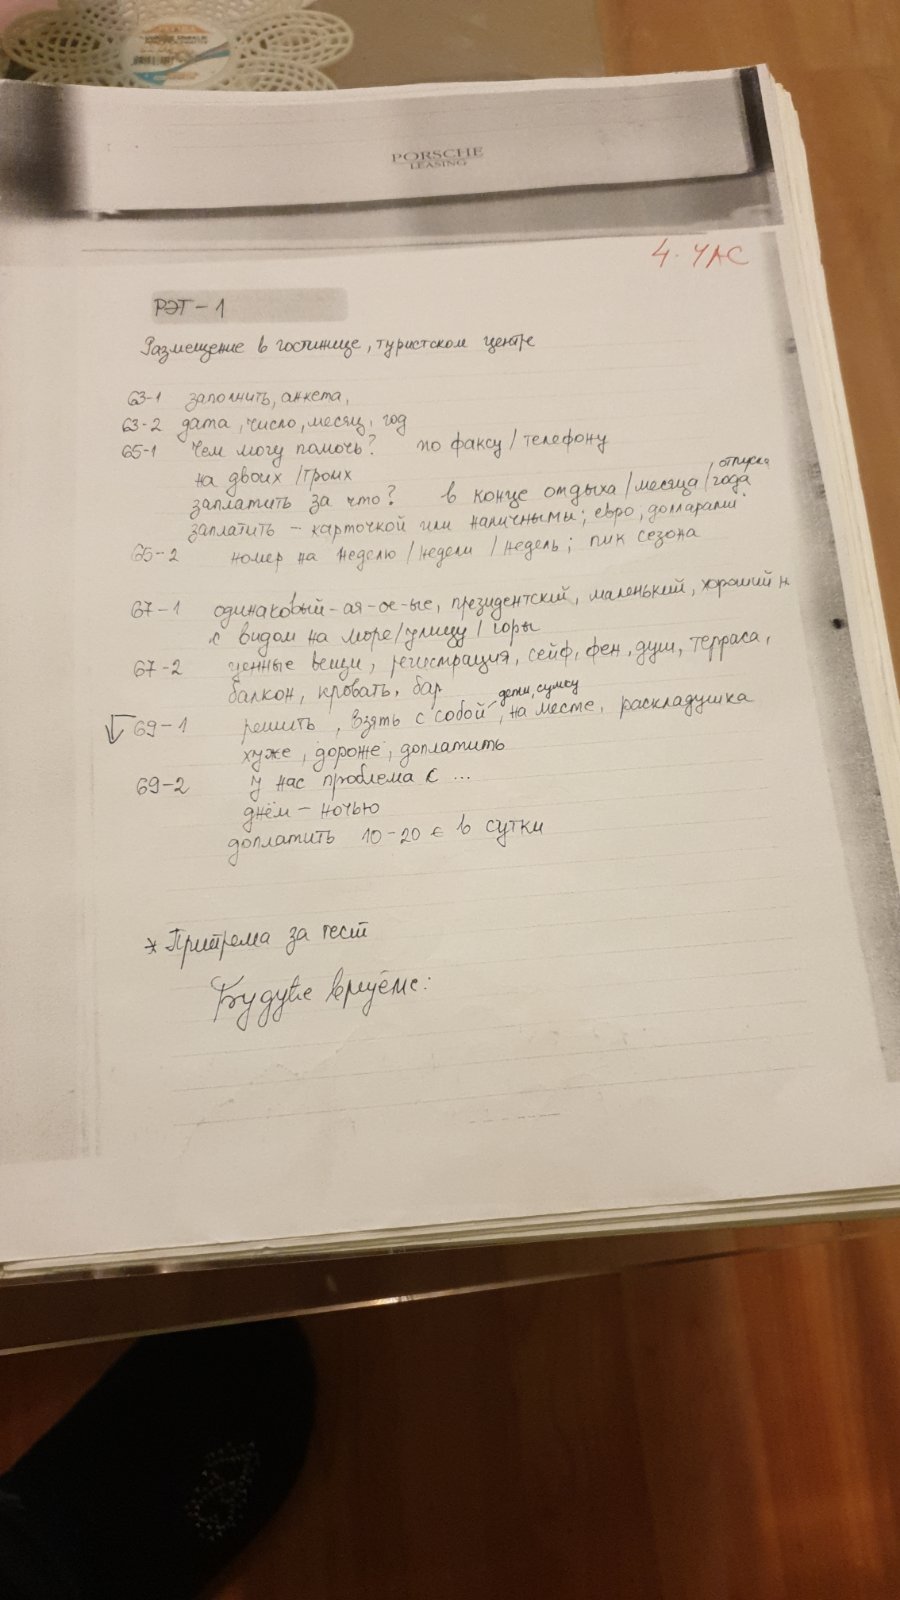 PORSCHE
LEASING
4. ЧАС
РЭТ - 1
Размещение в гостинице, туристском центре
63-1 заполнить, анкета,
63-2 дата, число, месяц, год
65-1 Чем могу помочь? по факсу / телефону
на двоих / троих
отпуска
заплатить за что? в конце отдыха / месяца / года
заплатить - карточкой или наличными; евро, долларами
65-2 номер на неделю / недели / недель; пик сезона
67-1 одинаковый-ая-ое-ые, президентский, маленький, хороший н
с видом на море / улицу / горы
67-2 ценные вещи, регистрация, сейф, фен, душ, терраса,
балкон, кровать, бар
дети, сумку
69-1 решить, взять с собой, на месте, раскладушка
хуже, дороже, доплатить
69-2 У нас проблема с ...
днём - ночью
доплатить 10-20 € в сутки
* Припрема за тест
Будуће време: